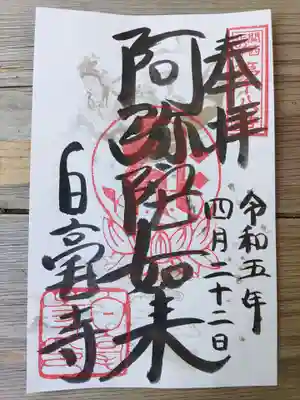 奉拝
令和五年
四月二十二日
阿弥陀如来
白毫寺